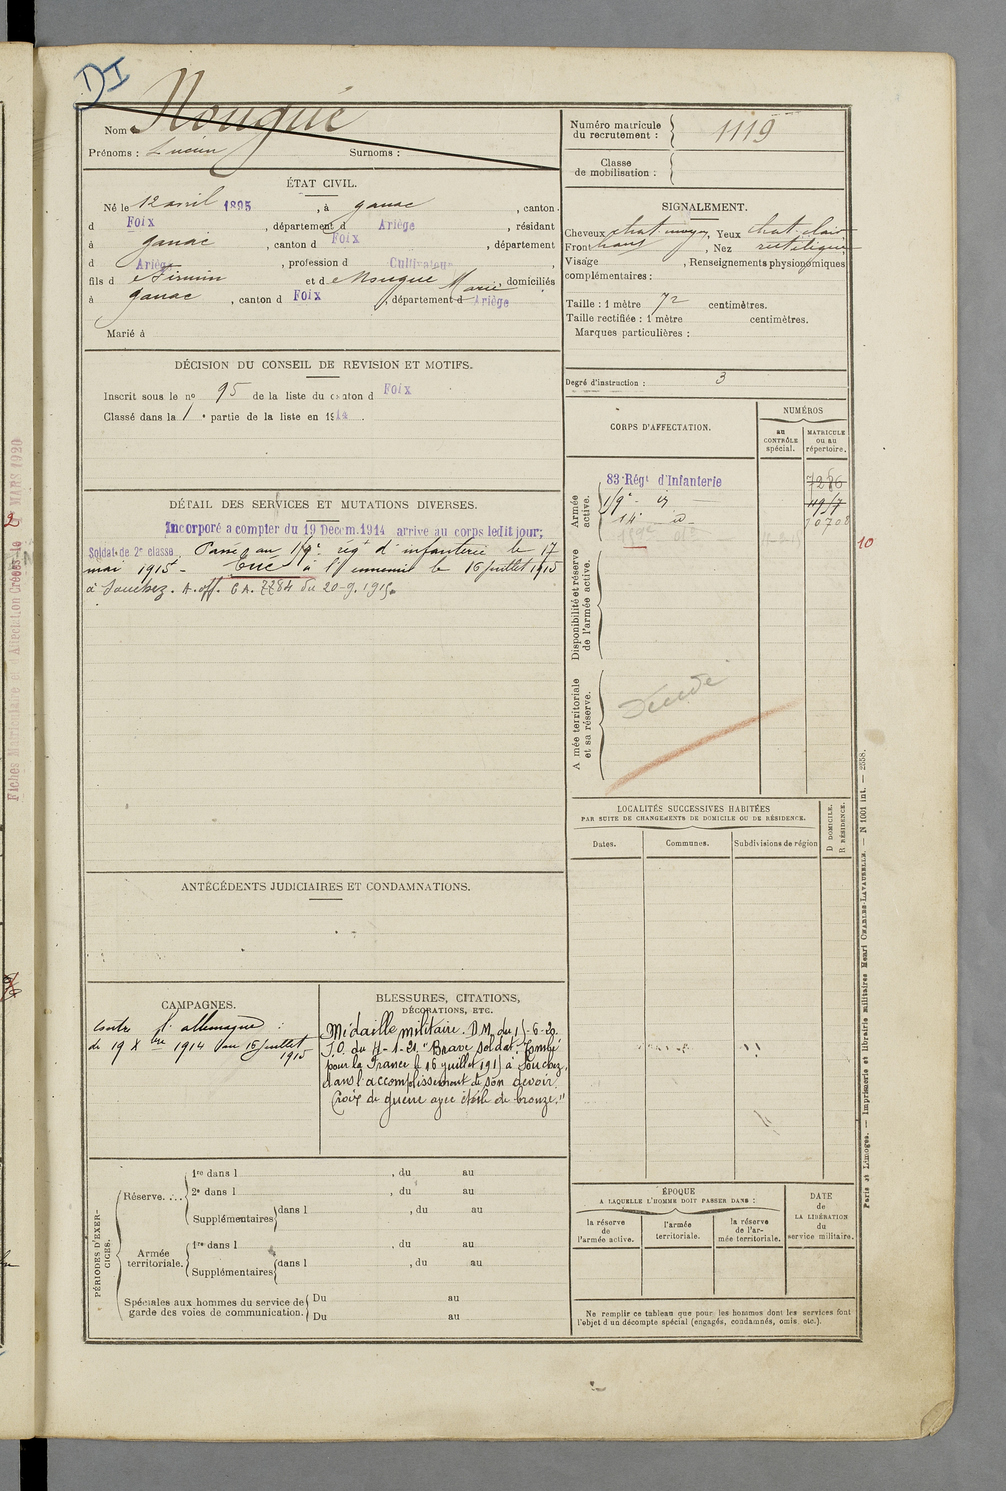 DI
Nom Nougué
Prénoms : Lucien Surnoms :
Numéro matricule du recrutement : 1119
Classe de mobilisation :
ÉTAT CIVIL.
Né le 12 avril 1895, à ganac, canton
d Foix, département d Ariège, résidant
à ganac, canton d Foix, département
d Ariège, profession d Cultivateur,
fils d Firmin et d Nougué Marie domiciliés
à ganac, canton d Foix, département d Ariège
Marié à
SIGNALEMENT.
Cheveux chat. moyen, Yeux chat. clair
Front haut, Nez rectiligne
Visage , Renseignements physionomiques
complémentaires :
Taille : 1 mètre 72 centimètres.
Taille rectifiée : 1 mètre centimètres.
Marques particulières :
Degré d'instruction : 3
DÉCISION DU CONSEIL DE REVISION ET MOTIFS.
Inscrit sous le nº 95 de la liste du canton d Foix
Classé dans la 1e partie de la liste en 1914
CORPS D'AFFECTATION.
NUMÉROS
au CONTRÔLE spécial.
MATRICULE ou au répertoire.
Armée active.
83e Régt d'Infanterie 7286
10708
10
Disponibilité et réserve de l'armée active.
Armée territoriale et sa réserve.
Décédé
DÉTAIL DES SERVICES ET MUTATIONS DIVERSES.
Incorporé a compter du 19 Décem. 1914 arrivé au corps ledit jour;
Soldat de 2e classe. Passé au 149e rég. d'infanterie le 17
mai 1915 - Tué à l'Ennemi le 16 juillet 1915
à Souchez. A. off. CA. 7784 du 20-9.1915.
ANTÉCÉDENTS JUDICIAIRES ET CONDAMNATIONS.
LOCALITÉS SUCCESSIVES HABITÉES
PAR SUITE DE CHANGEMENTS DE DOMICILE OU DE RÉSIDENCE.
Dates. Communes. Subdivisions de région
D DOMICILE.
R RÉSIDENCE.
CAMPAGNES.
Contre l'allemagne :
de 19 Xbre 1914 au 16 juillet
1915
BLESSURES, CITATIONS,
DÉCORATIONS, ETC.
Médaille militaire. D.M. du 15-6-20.
J.O. du 4-1-21. "Brave soldat. Tombé
pour la France le 16 juillet 1915 à Souchez,
dans l'accomplissement de son devoir.
Croix de guerre avec étoile de bronze."
PÉRIODES D'EXERCICES.
Réserve....
1re dans l , du au
2e dans l , du au
Supplémentaires dans l , du au
Armée territoriale.
1re dans l , du au
Supplémentaires dans l , du au
Spéciales aux hommes du service de garde des voies de communication.
Du au
Du au
ÉPOQUE
A LAQUELLE L'HOMME DOIT PASSER DANS :
la réserve de l'armée active.
l'armée territoriale.
la réserve de l'armée territoriale.
DATE de LA LIBÉRATION du service militaire.
Ne remplir ce tableau que pour les hommes dont les services font
l'objet d'un décompte spécial (engagés, condamnés, omis, etc.).
Paris et Limoges. — Imprimerie et librairie militaires Henri CHARLES-LAVAUZELLE. — N 1001 int. — 2558.